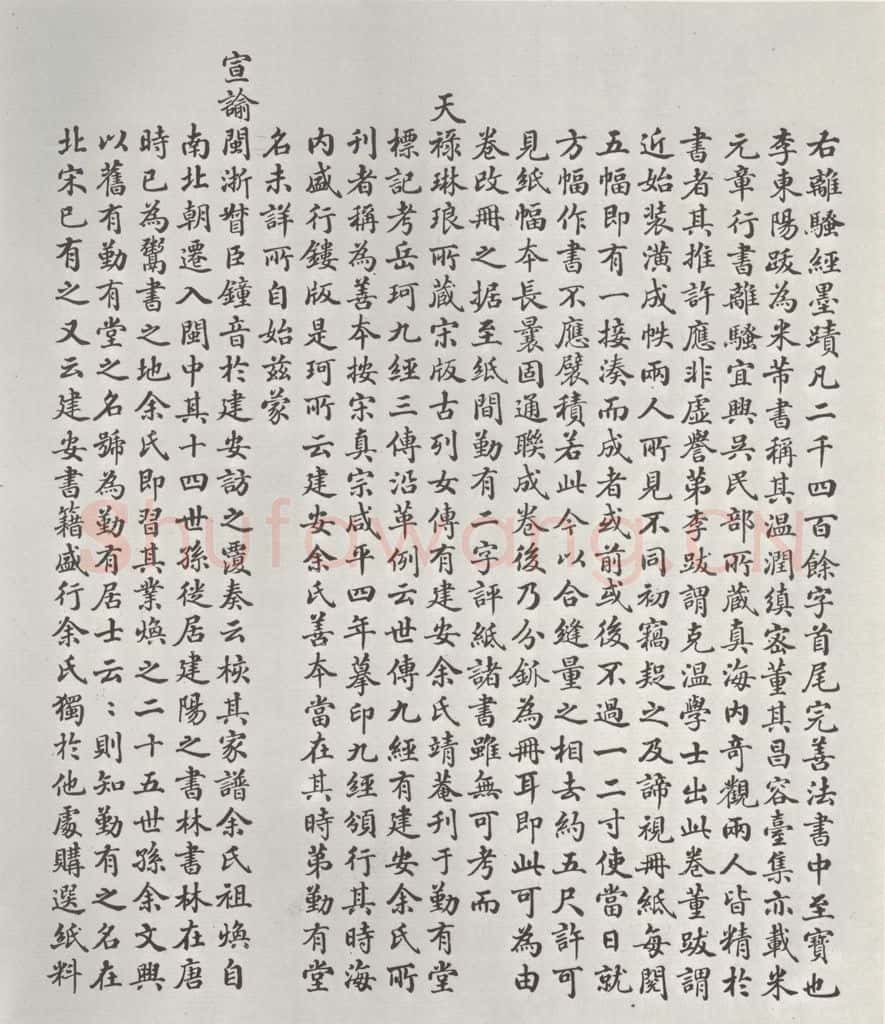 右離騷經墨蹟凡二千四百餘字首尾完善法書中至寶也
李東陽跋為米芾書稱其溫潤縝密董其昌容臺集亦載米
元章行書離騷宜興吳民部所藏真海内奇觀兩人皆精於
書者其推許應非虛譽第李跋謂克溫學士出此卷董跋謂
近始裝潢成帙兩人所見不同初竊疑之及諦視冊紙每閱
五幅即有一接湊而成者或前或後不過一二寸使當日就
方幅作書不應襞積若此今以合縫量之相去約五尺許可
見紙幅本長曩固通聯成卷後乃分釽為冊耳即此可為由
卷改冊之据至紙間勤有二字評紙諸書雖無可考而
天祿琳琅所藏宋版古列女傳有建安余氏靖菴刊于勤有堂
標記考岳珂九經三傳沿革例云世傳九經有建安余氏所
刊者稱為善本按宋真宗咸平四年摹印九經頒行其時海
内盛行鏤版是珂所云建安余氏善本當在其時第勤有堂
名未詳所自始茲蒙
宣諭閩浙督臣鐘音於建安訪之覆奏云檢其家譜余氏祖煥自
南北朝遷入閩中其十四世孫徙居建陽之書林書林在唐
時已為鬻書之地余氏即習其業煥之二十五世孫余文興
以舊有勤有堂之名號為勤有居士云：則知勤有之名在
北宋已有之又云建安書籍盛行余氏獨於他處購選紙料
shufawang.CN